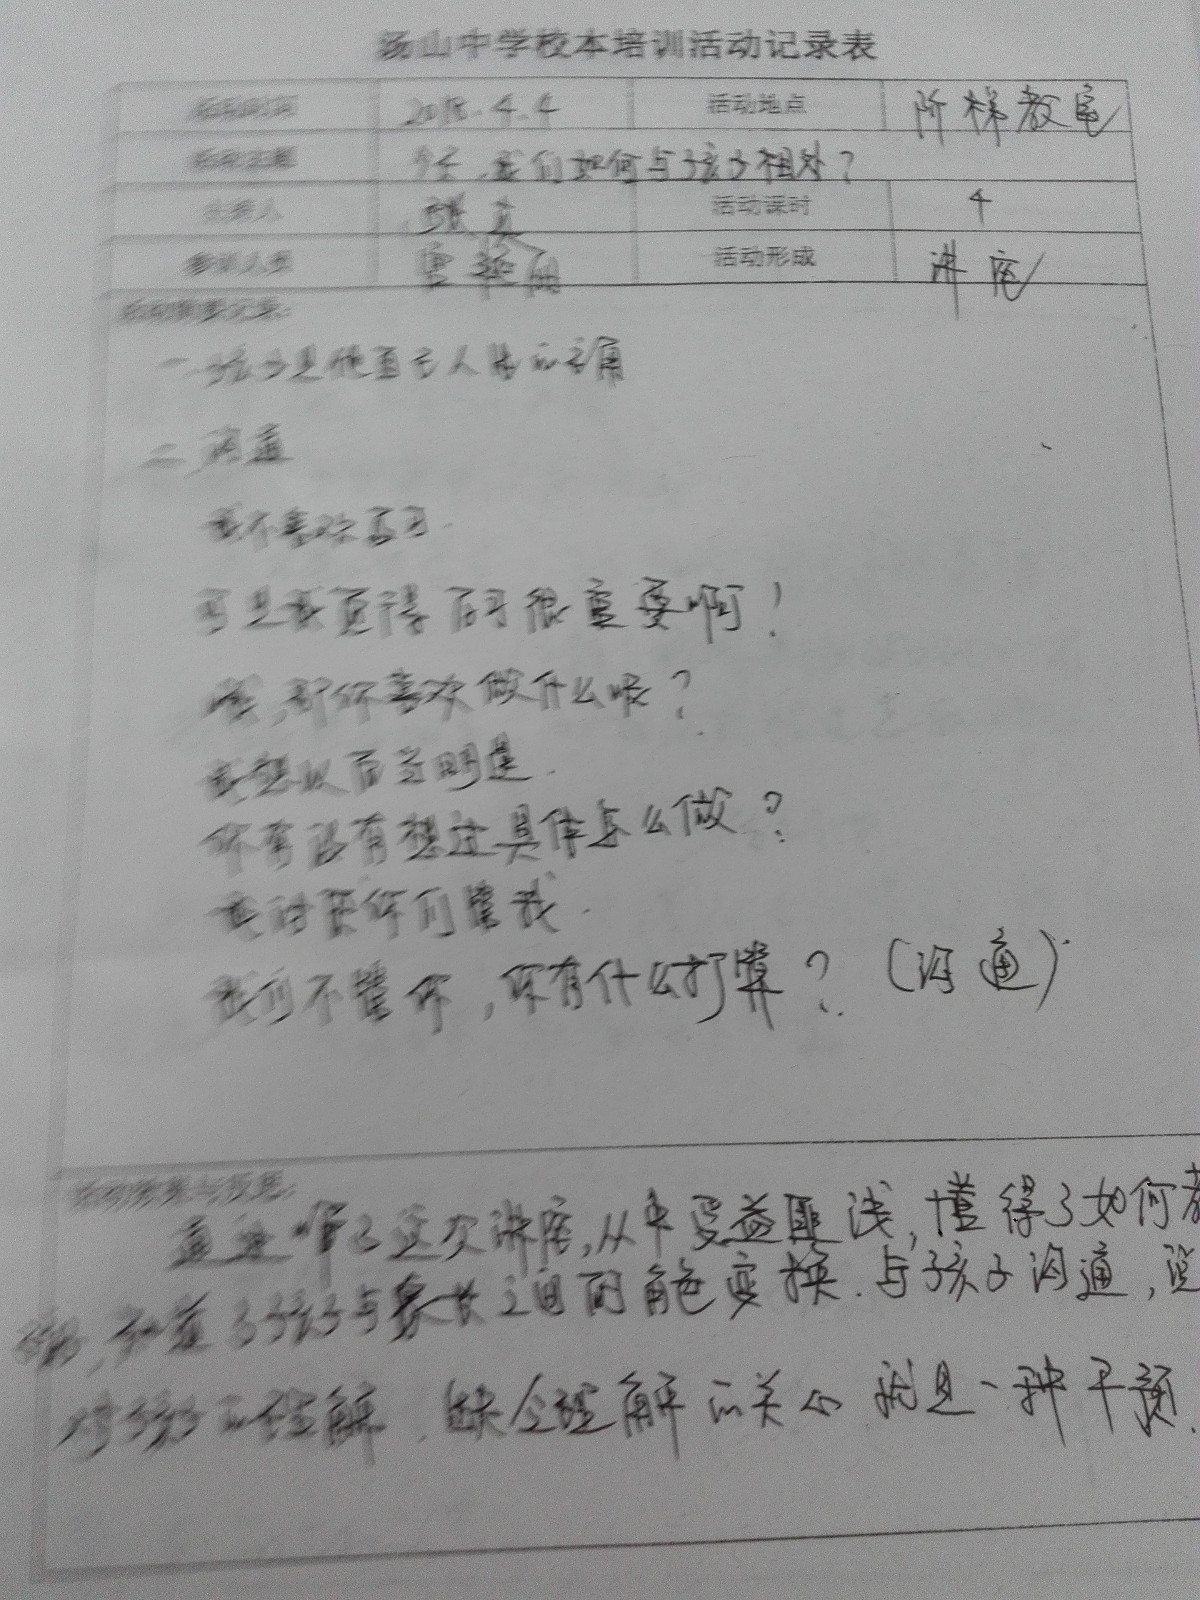 汤山中学校本培训活动记录表
活动时间 2018.4.4 活动地点 阶梯教室
活动主题 今天,我们如何与孩子相处?
主讲人 张 活动课时 4
参训人员 曹艳丽 活动形成 讲座
活动概要记录:
一、孩子是他自己人生的主角
二、沟通
我不喜欢学习.
可是我觉得学习很重要啊!
哦,那你喜欢做什么呢?
我想以后当明星.
你有没有想过具体怎么做?
我讨厌你们管我.
我们不管你,你有什么打算?(沟通)
活动收获与反思:
通过听了这次讲座,从中受益匪浅,懂得了如何
,知道了孩子与家长之间的角色变换.与孩子沟通,
对孩子的理解.缺乏理解的关心就是一种干预.